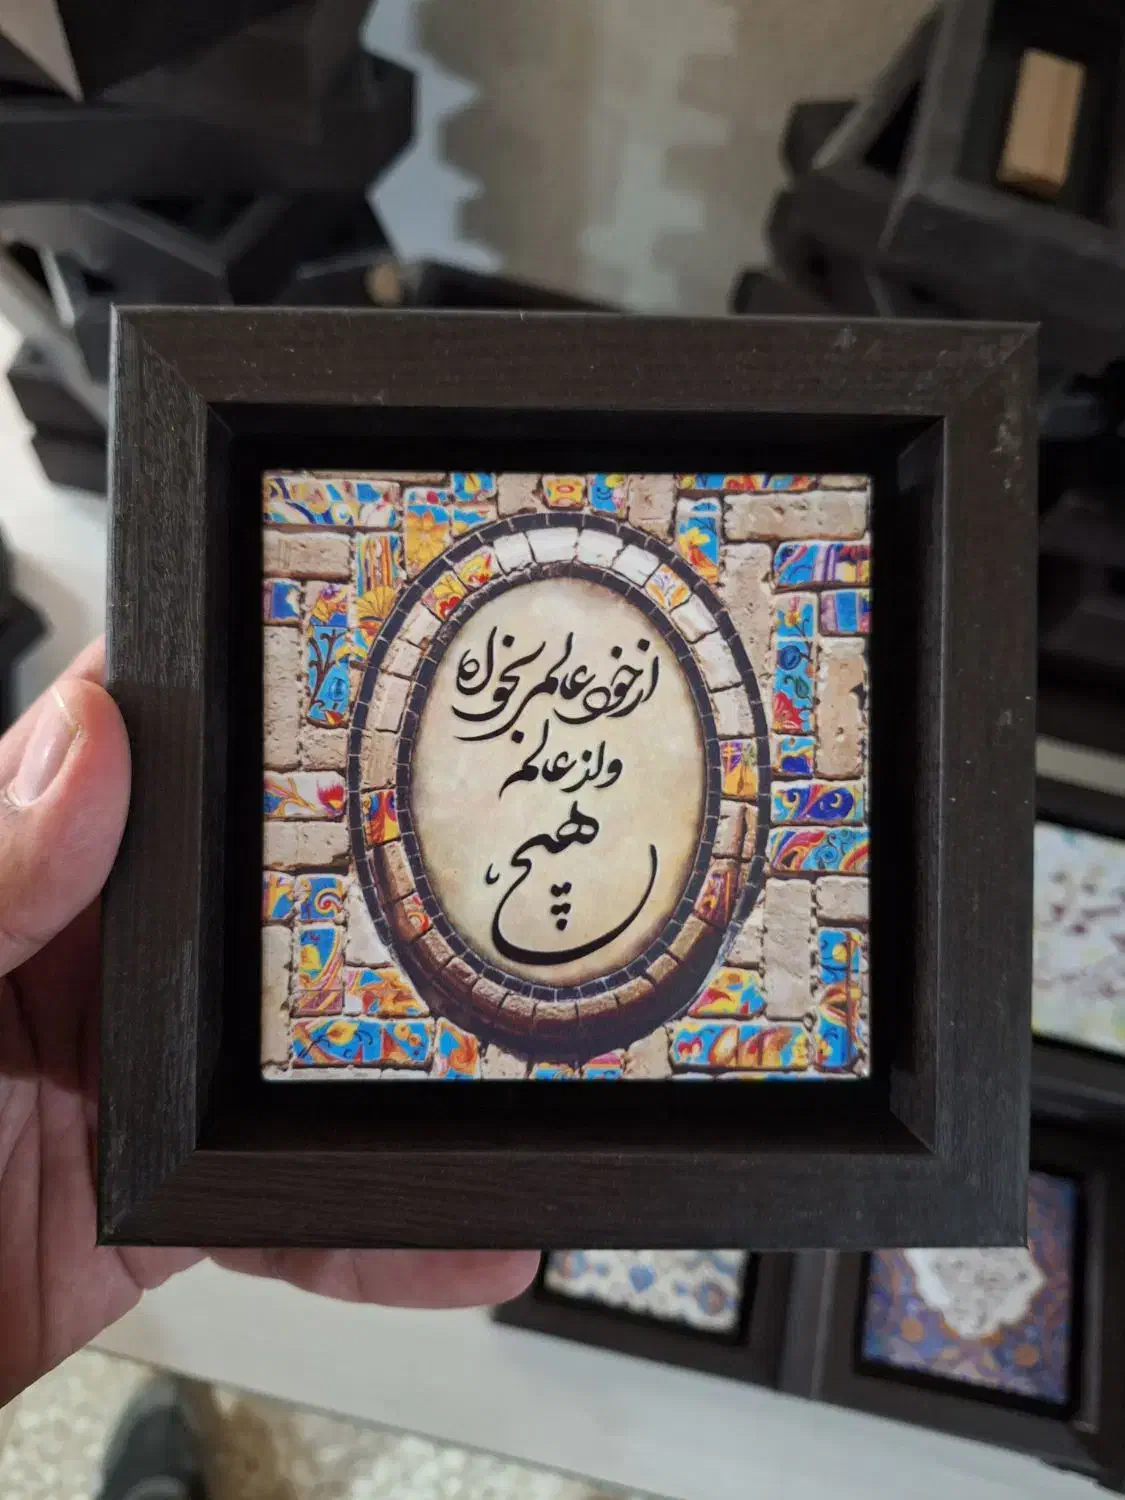 از خود عالم بخواه
واز عالم
هیچ